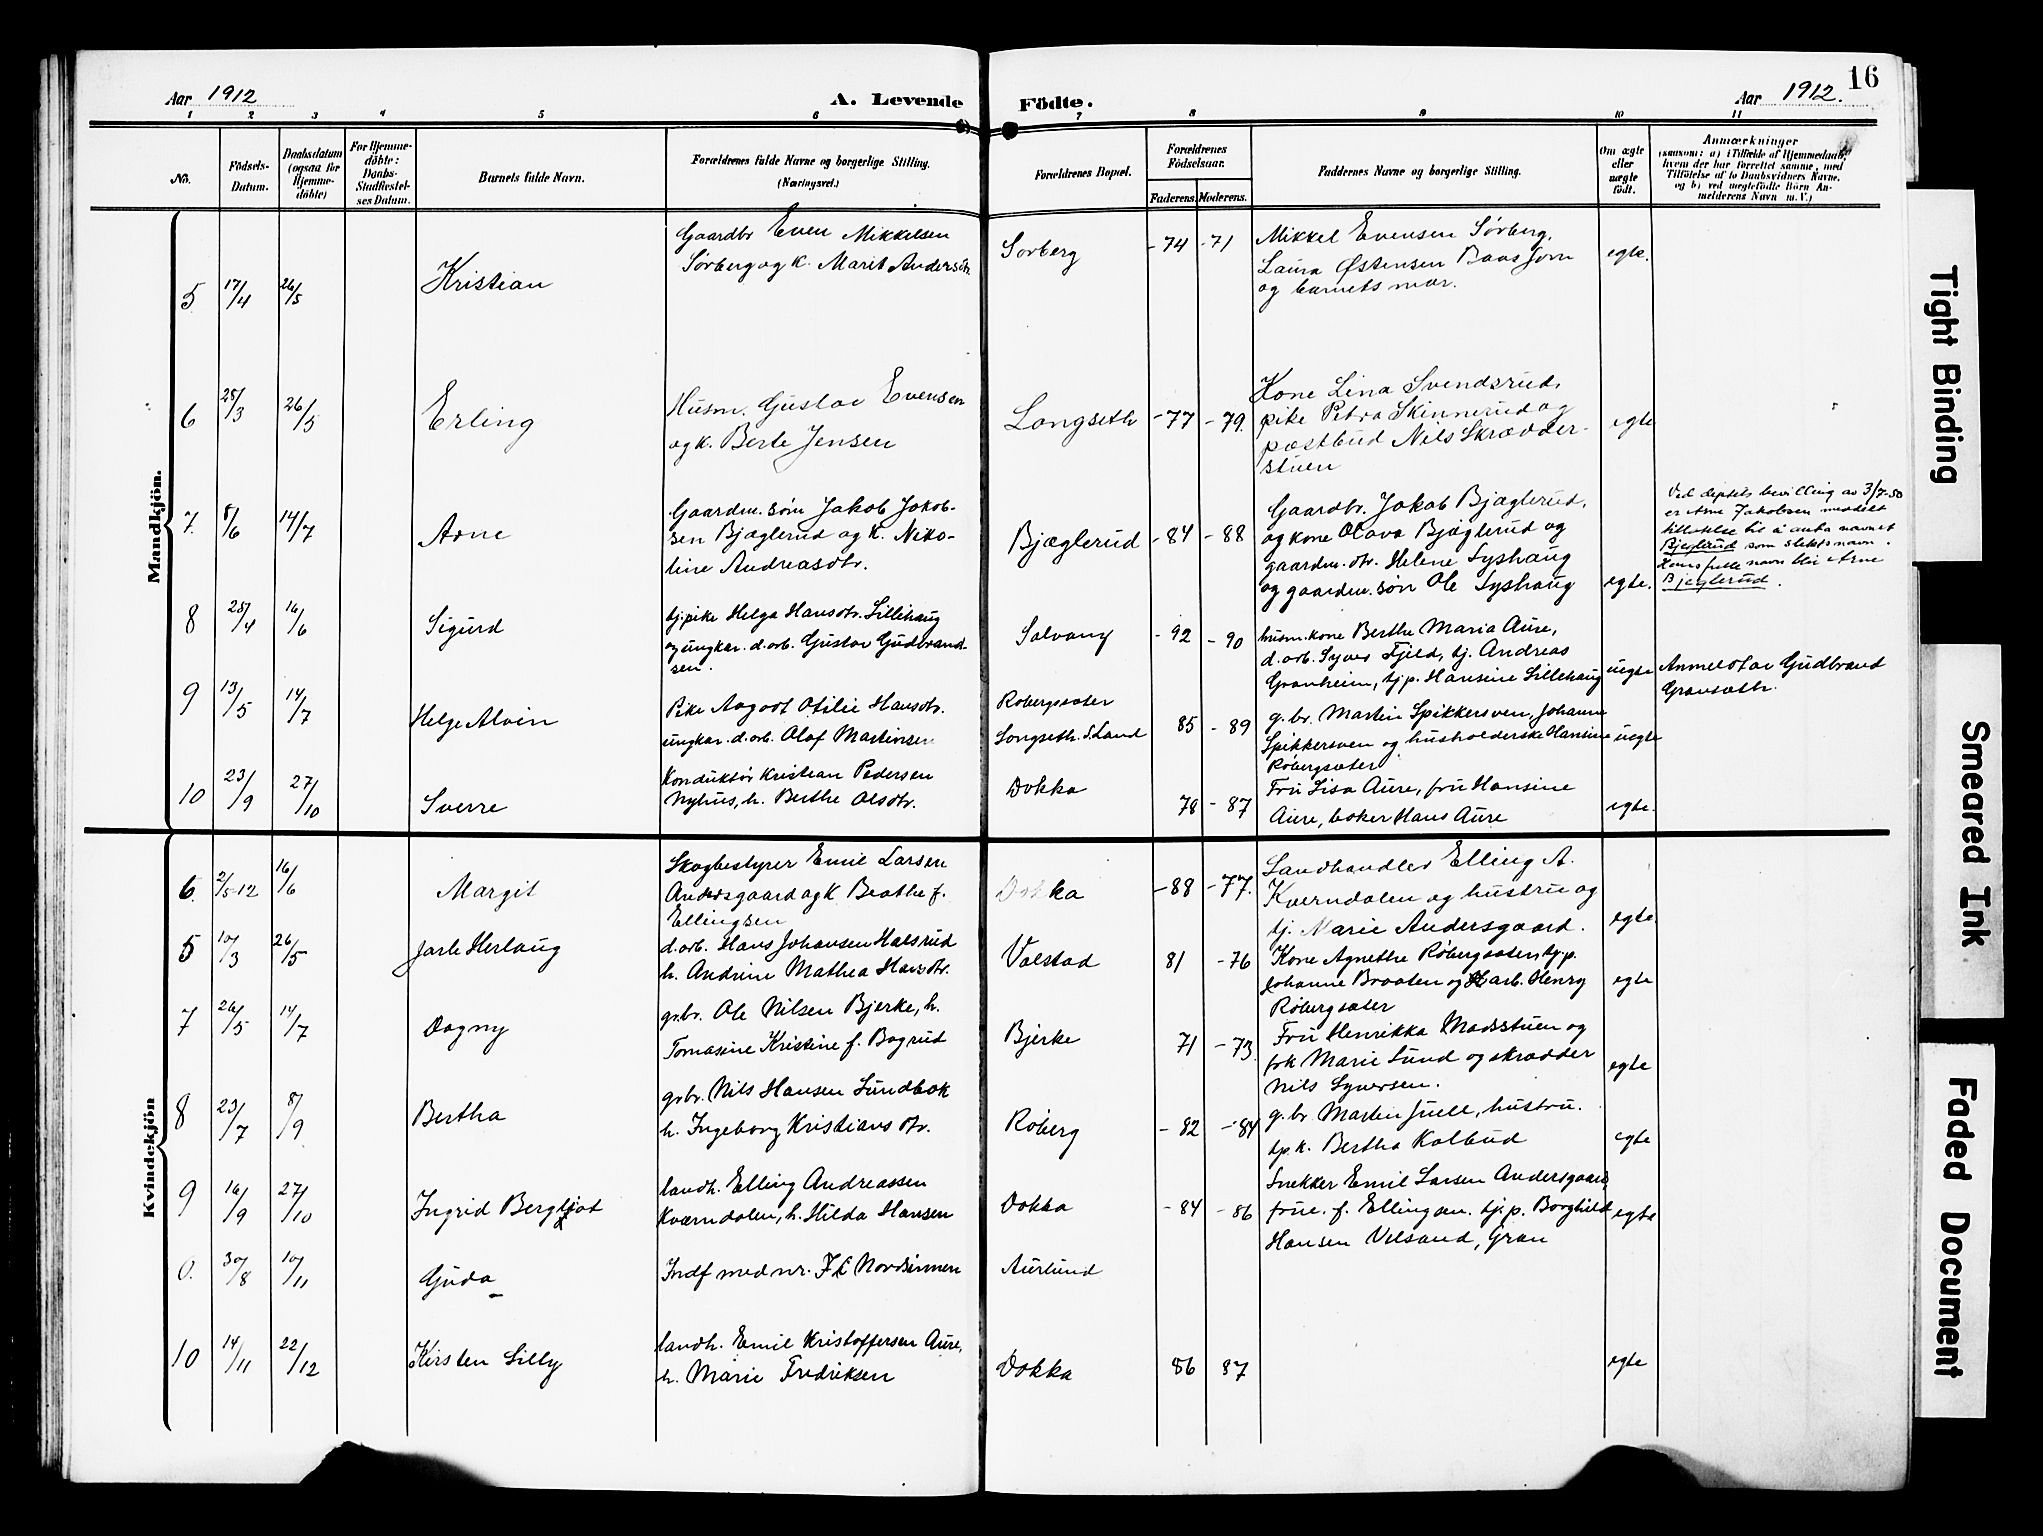 16
Aar 1912 A. Levende Födte. Aar 1912.
1 2 3 4 5 6 7 8 9 10 11
No.
Födsels-Datum.
Daabsdatum (ogsaa for Hjemme-döbte)
For Hjemme-döbte: Daabs-Stadfæstel-ses Datum.
Barnets fulde Navn.
Forældrenes fulde Navne og borgerlige Stilling. (Næringsvei.)
Forældrenes Bopæl.
Forældrenes Födselsaar.
Faderens. Moderens.
Faddernes Navne og borgerlige Stilling.
Om ægte eller uægte födt.
Anmærkninger
(saasom: a) i Tilfælde af Hjemmedaab,
hvem der har forrettet samme, med
Tilföielse af to Daabsvidners Navne,
og b) ved uægtefödte Börn An-
melderens Navn m. V.)
Mandkjön.
5 17/4 26/5 Kristian
Gaardbr Even Mikkelsen
Sørberg og k. Marit Andersdtr.
Sørberg -74 -71
Mikkel Evensen Sørberg,
Laura Østensen
og barnets mor.
egte.
6 28/3 26/5 Erling
Husm. Gustav Evensen
og k. Berte Jensen
Langseth -77 -79.
Kone Lina Svendsrud,
pike Petra Skinnerud og
postbud Nils Skrædder-
stuen
egte
7. 8/6 14/7 Arne
Gaardm. søn Jakob Jakob-
sen Bjæglerud og k. Niko-
line Andreasdtr.
Bjæglerud -84 -88
Gaardbr. Jakob Bjæglerud,
og kone Olava Bjæglerud og
gaardm. dtr. Helene Lyshaug
og gaardm. søn Ole Lyshaug
egte.
Ved deptets bevilling av 3/7-50
er Arne Jakobsen meddelt
tillatelse til å anta navnet
Bjeglerud som slektsnavn.
Hans fulle navn blir Arne
Bjeglerud.
8 28/4 16/6 Sigurd
tj.pike Helga Hansdtr. Lillehaug
og ungkar. d.arb. Gustav Gudbrand-
sen.
Solvang -92 -90
husm. kone Berthe Maria Aure,
d. arb. Syver Fjeld, tj. Andreas
Granheim, tj.p. Hansine Lillehaug
uegte
Anmeldt av Gudbrand
9 13/5 14/7 Helge Alvin
Pike Aagodt Otilie Hansdtr.
ungkar. d. arb. Olaf Martinsen
Røbergsæter
Longseth. S. Land 85 -89
g.br. Martin Spikkersven, Johanne
Spikkersven og husholderske Hansine
Røbergsæter
uegte
10 23/9 27/10 Sverre
Konduktør Kristian Pedersen
Nyhus, h. Berthe Olsdtr.
Dokka 78 -87
Fru Lisa Aure, fru Hansine
Aure, baker Hans Aure
egte.
Kvindekjön
6. 2/5-12 16/6 Margit
Skogbestyrer Emil Larsen
Andersgaard og k Beathe f.
Ellingsen
Dokka -88 -77.
Landhandler Elling A.
Kverndalen og hustru og
tj. Marie Andersgaard.
egte
5 10/3 26/5 Jarle Herlaug
d. arb. Hans Johansen Halsrud
h. Andrine Mathea Hansdtr.
Volstad 81 -76
Kone Agnethe Røbergsæter, tj.p.
Johanne Braaten og arb. Henry
Røbergsæter
egte
7 26/5 14/7 Dagny
g.br. Ole Nilsen Bjerke, h.
Tomasine Kristine f. Bagrud
Bjerke 71 -73
Fru Henrikka Madsstuen og
frk Marie Lund og skrædder
Nils Syversen.
egte
8 23/7 8/9 Bertha
g.br. Nils Hansen Lundbak
h. Ingeborg Kristiansdtr.
Røberg -82 -84
g.br. Martin Juell, hustru.
tj.k. Bertha Kolbud
egte
9 16/9 27/10 Ingrid Bergljot
landh. Elling Andreassen
Kværndalen, h. Hilda Hansen
Dokka -84 -86
Snekker Emil Larsen Andersgaard
frue. f. Ellingsen. tj.p. Borghild
Hansen Velsand, Gran
egte
0. 30/8 10/11 Guda
Indf med nr. Nordsinnen
Aurlund
10 14/11 22/12 Kirsten Lilly
landh. Emil Kristoffersen Aure,
h. Marie Fredriksen
Dokka 86 87
egte
Tight Binding
Smeared Ink
Faded Document